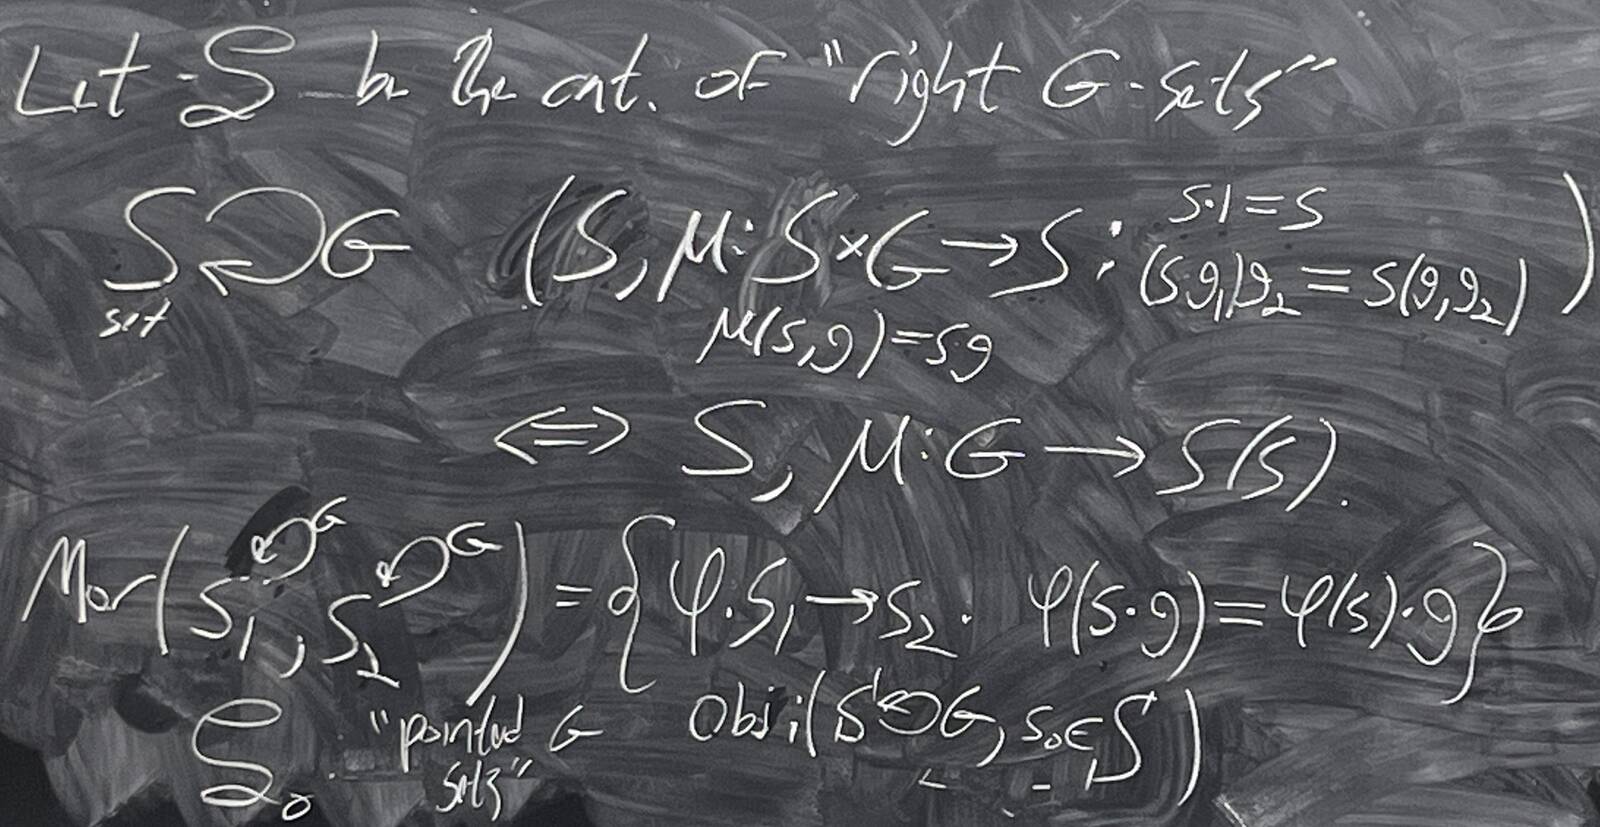 Let S be the cat. of "right G-sets"
S ↻ G (S, μ: S×G → S: s·1=s
set (s·g₁)g₂ = s(g₁g₂))
μ(s,g)=s·g
<=> S, μ: G → S(S).
Mor(S₁ ↻ G, S₂ ↻ G) = {φ: S₁ → S₂: φ(s·g)=φ(s)·g}
S₀ "pointed G sets" Obj: (S ↻ G, s₀ ∈ S)